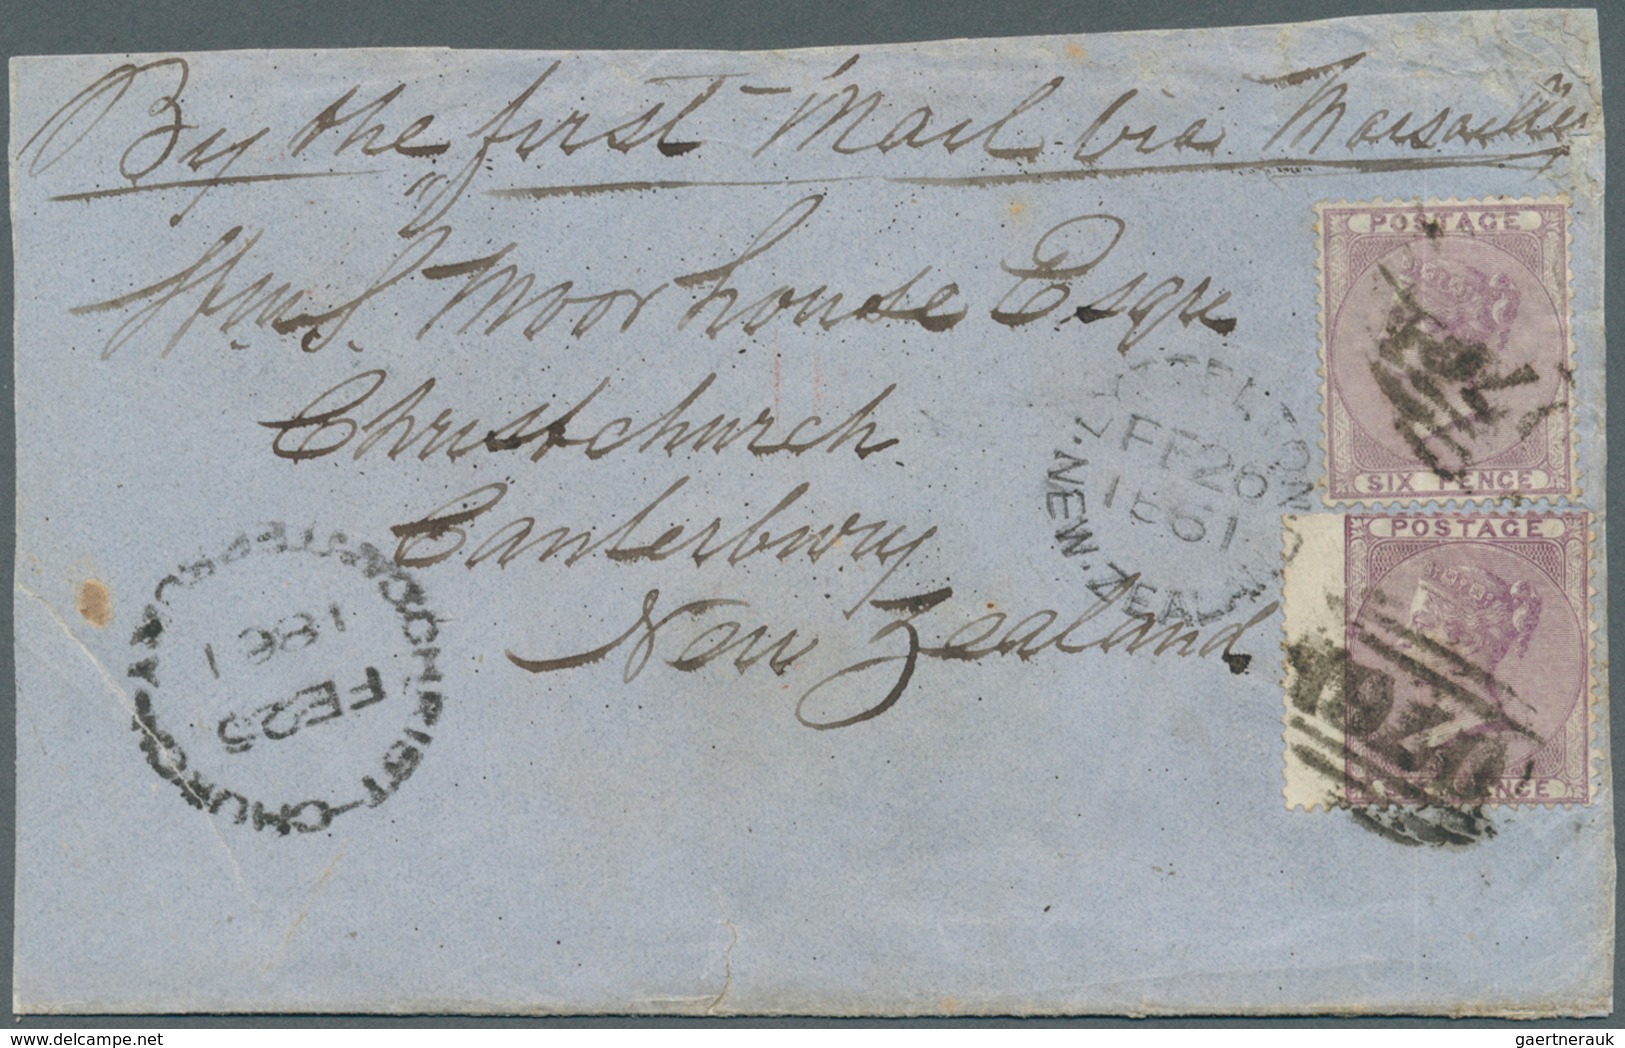 By the first Mail via Marseilles
Wm. S. Moorhouse Esqre
Christchurch
Canterbury
New Zealand
LYTTELTON
FE 26
1861
NEW.ZEALAND
POSTAGE
SIX PENCE
POSTAGE
PENCE
CHRIST-CHURCH
FE 26
1861
gaertnerauk